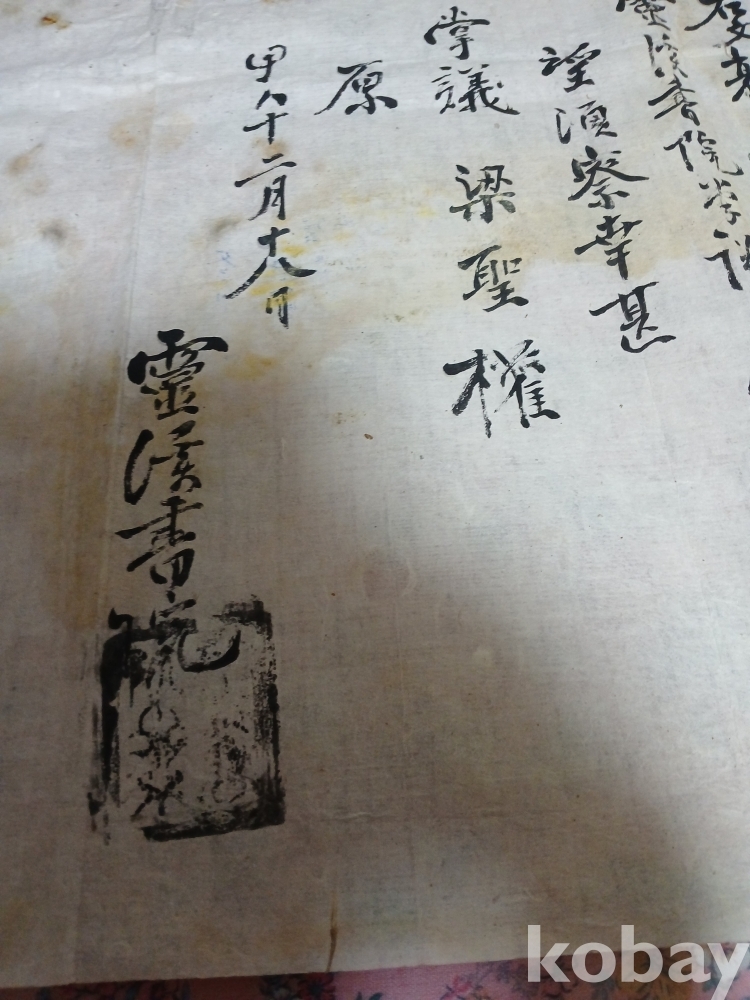 靈溪書院掌議
望須察幸甚
掌議 梁聖權
原
甲八十二月十九日
靈溪書院
kobay